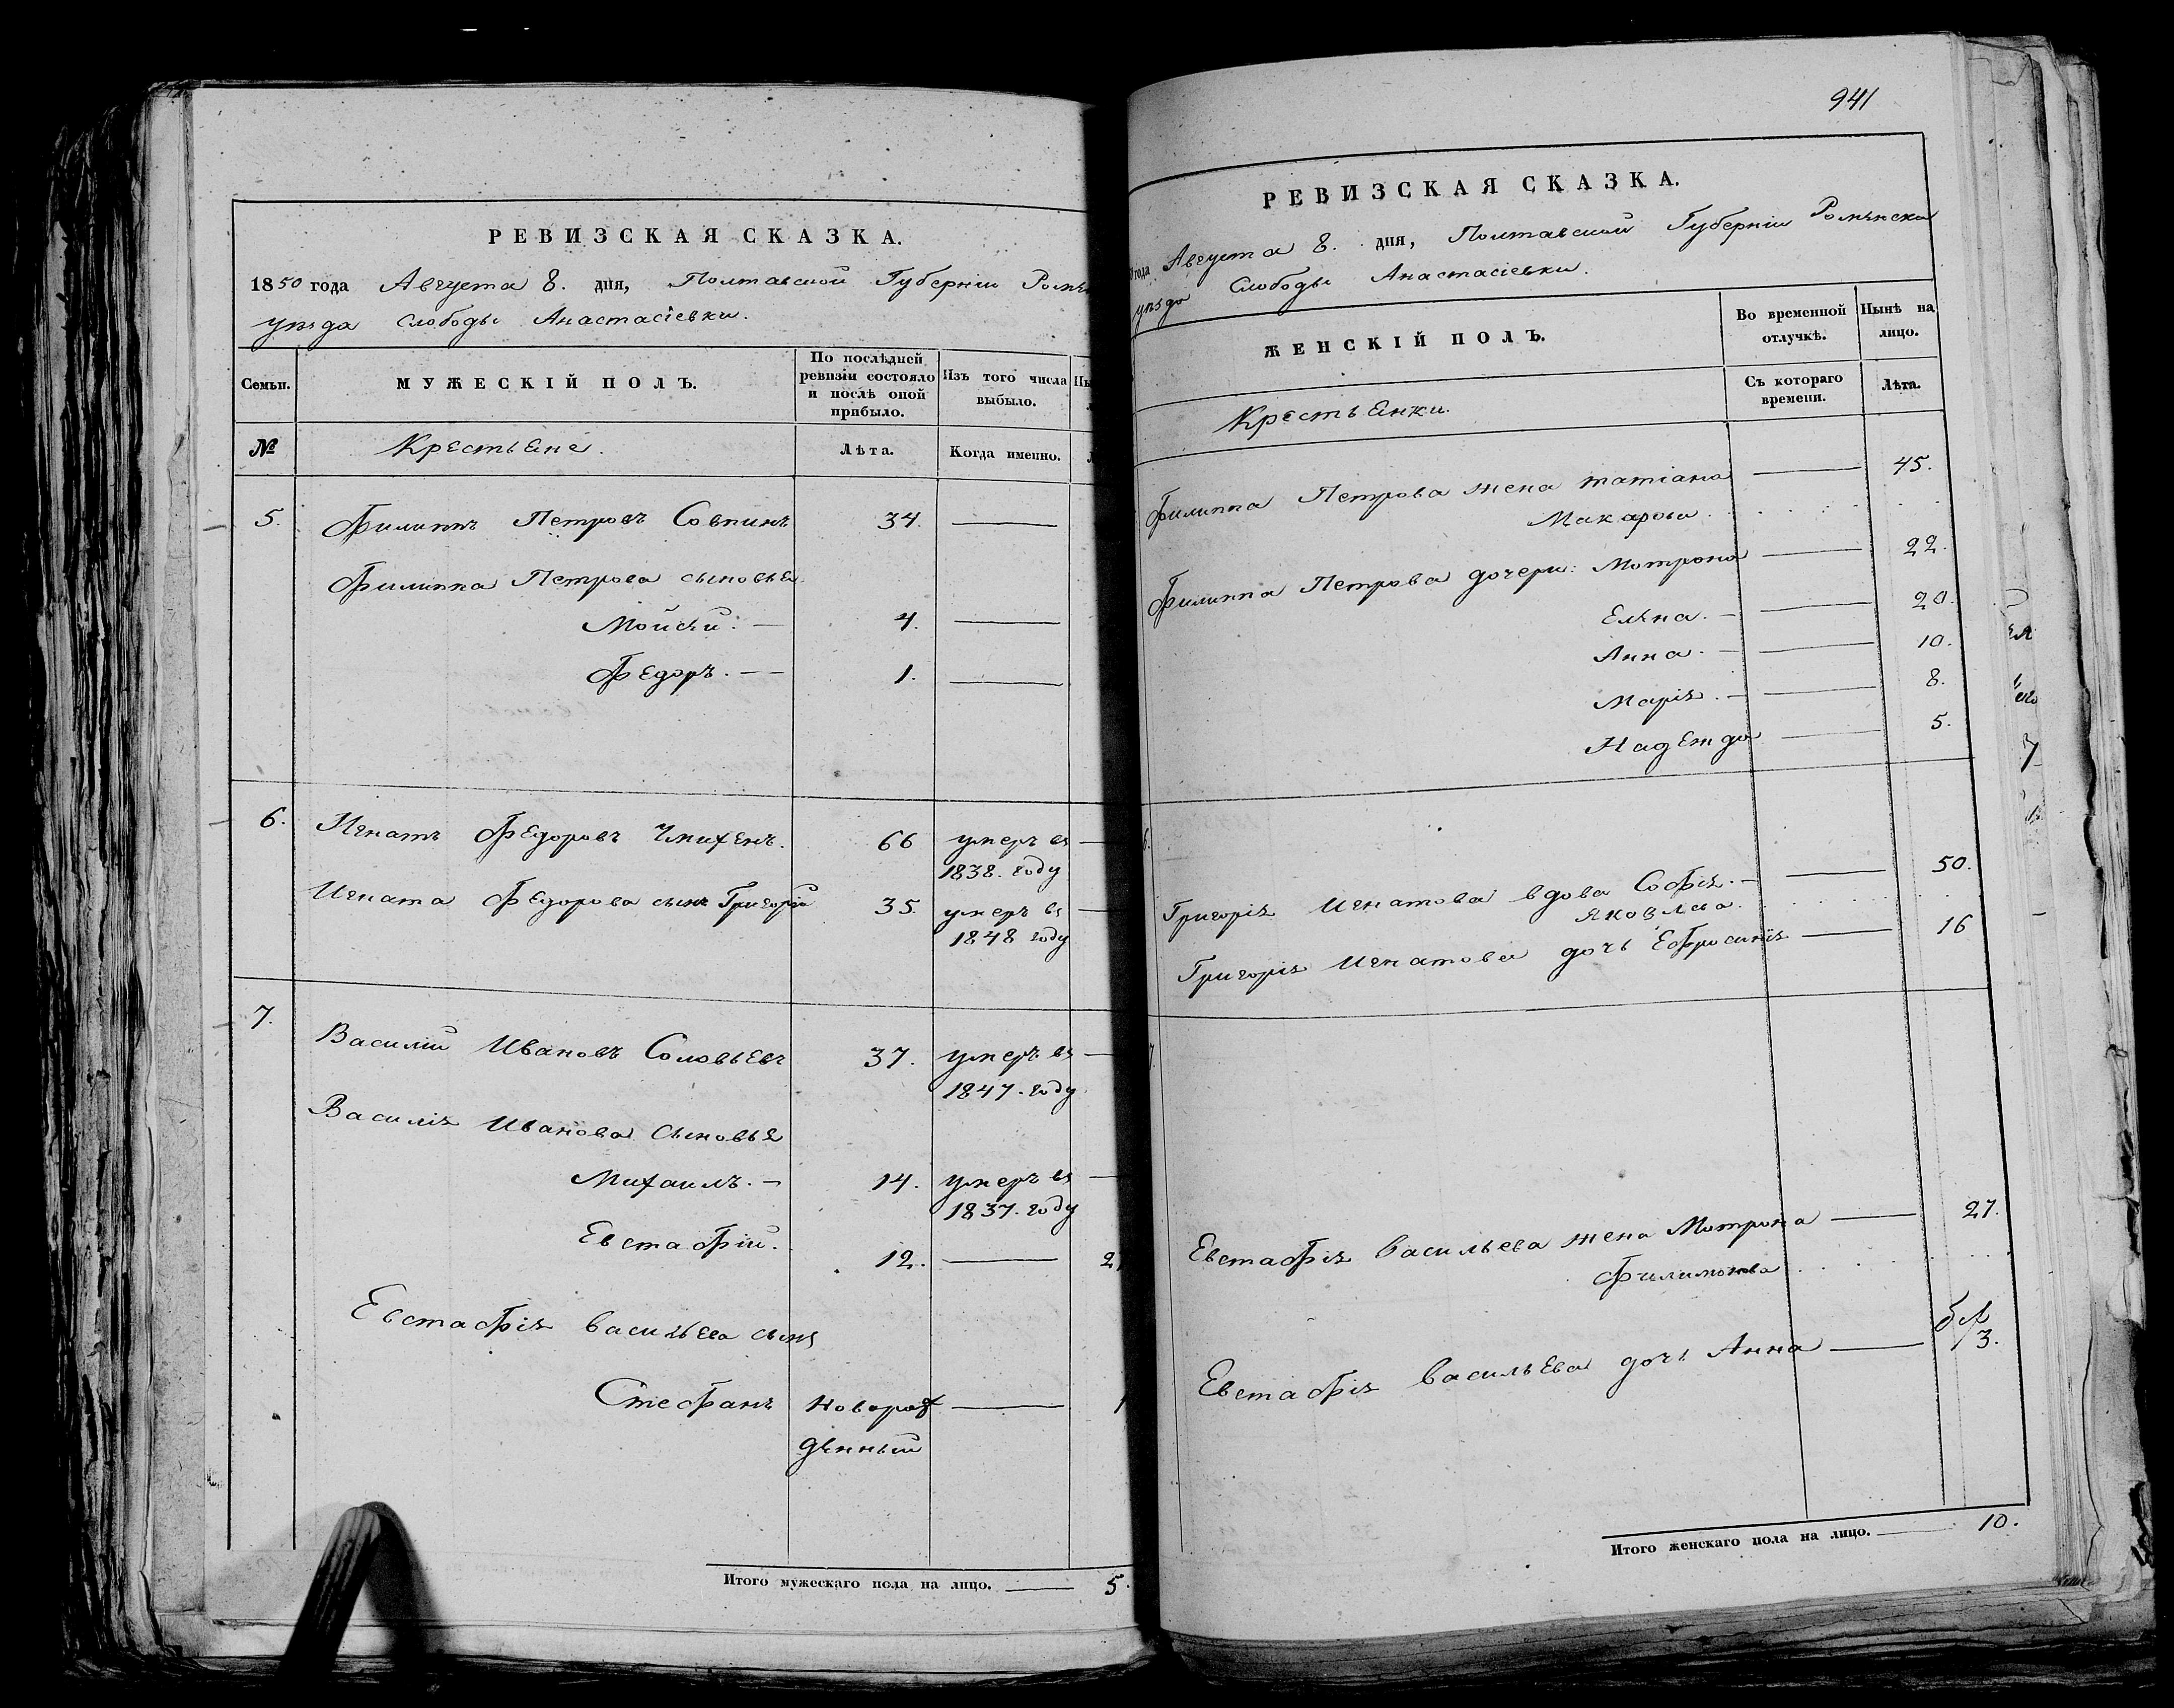 РЕВИЗСКАЯ СКАЗКА.
1850 года Августа 8. дня, Полтавской Губерніи
уѣзда Слободы Анастасіевки.
Семьи.
МУЖЕСКІЙ ПОЛЪ.
По послѣдней
ревизіи состояло
и послѣ оной
прибыло.
Изъ того числа
выбыло.
№
Крестьяне.
Лѣта.
Когда именно.
5. Филиппъ Петровъ Совпинъ 34. —
Филиппа Петрова сыновья
Мойсѣй. — 4. —
Федоръ. — 1. —
6. Игнатъ Федоровъ Чмихенъ. 66 умеръ въ —
1838. году
Игната Федорова сынъ Григорій 35. умеръ въ —
1848 году
7. Василій Ивановъ Соловьевъ 37. умеръ въ —
1847. году
Василія Иванова сыновья
Михаилъ. — 14. умеръ въ —
1837. году
Евстафій. 12. —
Евстафія Васильева сынъ
Стефанъ новорож —
денный
Итого мужескаго пола на лицо. — 5.
941
РЕВИЗСКАЯ СКАЗКА.
года Августа 8. дня, Полтавской Губерніи Роменска
уѣзда Слободы Анастасіевки.
ЖЕНСКІЙ ПОЛЪ.
Во временной
отлучкѣ.
Нынѣ на
лицо.
Съ котораго
времени.
Лѣта.
Крестьянки.
Филиппа Петрова жена татіана — 45.
Макарова.
Филиппа Петрова дочери: Мотрона — 22.
Елена. — 20.
Анна. — 10.
Марія. — 8.
Надежда — 5.
6.
Григорія Игнатова вдова Софія. — 50.
Яковлева.
Григорія Игнатова дочь Ефросинія — 16
Евстафія Васильева жена Мотрона — 27.
Филимонова
Евстафія Васильева дочь Анна — 3.
Итого женскаго пола на лицо. — 10.